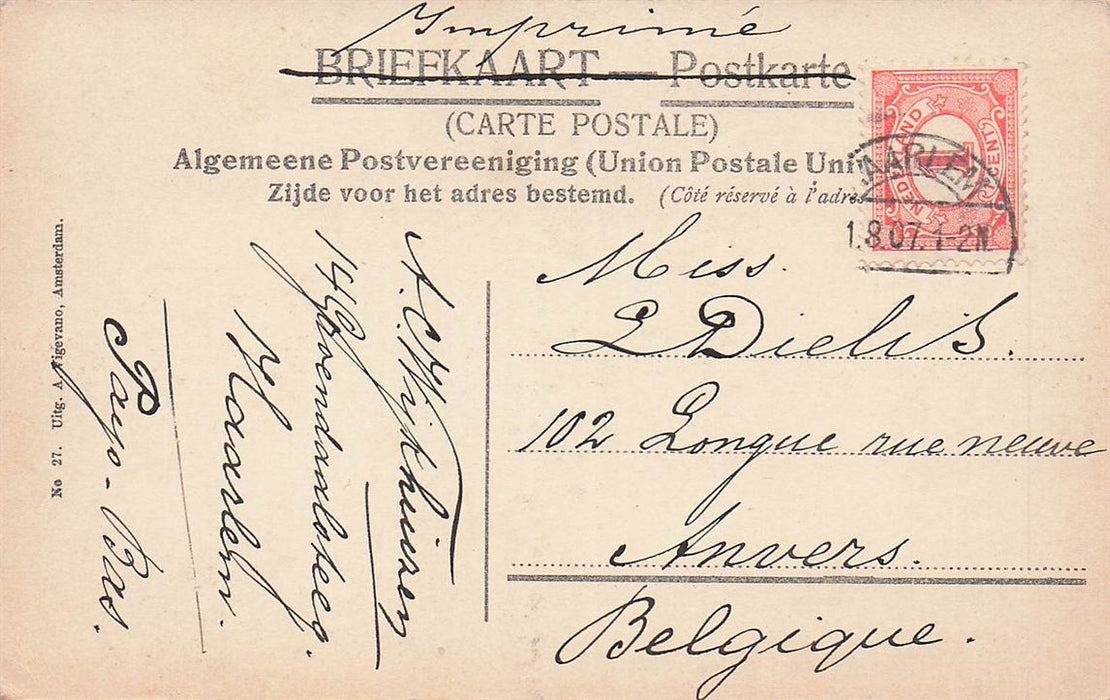 Imprimé
BRIEFKAART — Postkarte
(CARTE POSTALE)
Algemeene Postvereeniging (Union Postale Uni
Zijde voor het adres bestemd. (Côté réservé à l'adres
NEDERLAND
1 CENT
HAARLEM
1.8.07.1-2N
Miss.
L Dielis.
102 Longue rue neuve
Anvers.
Belgique.
A.C. Wijkhuizen
Haarlem.
Pays-Bas.
No 27. Uitg. A. Vigevano, Amsterdam.